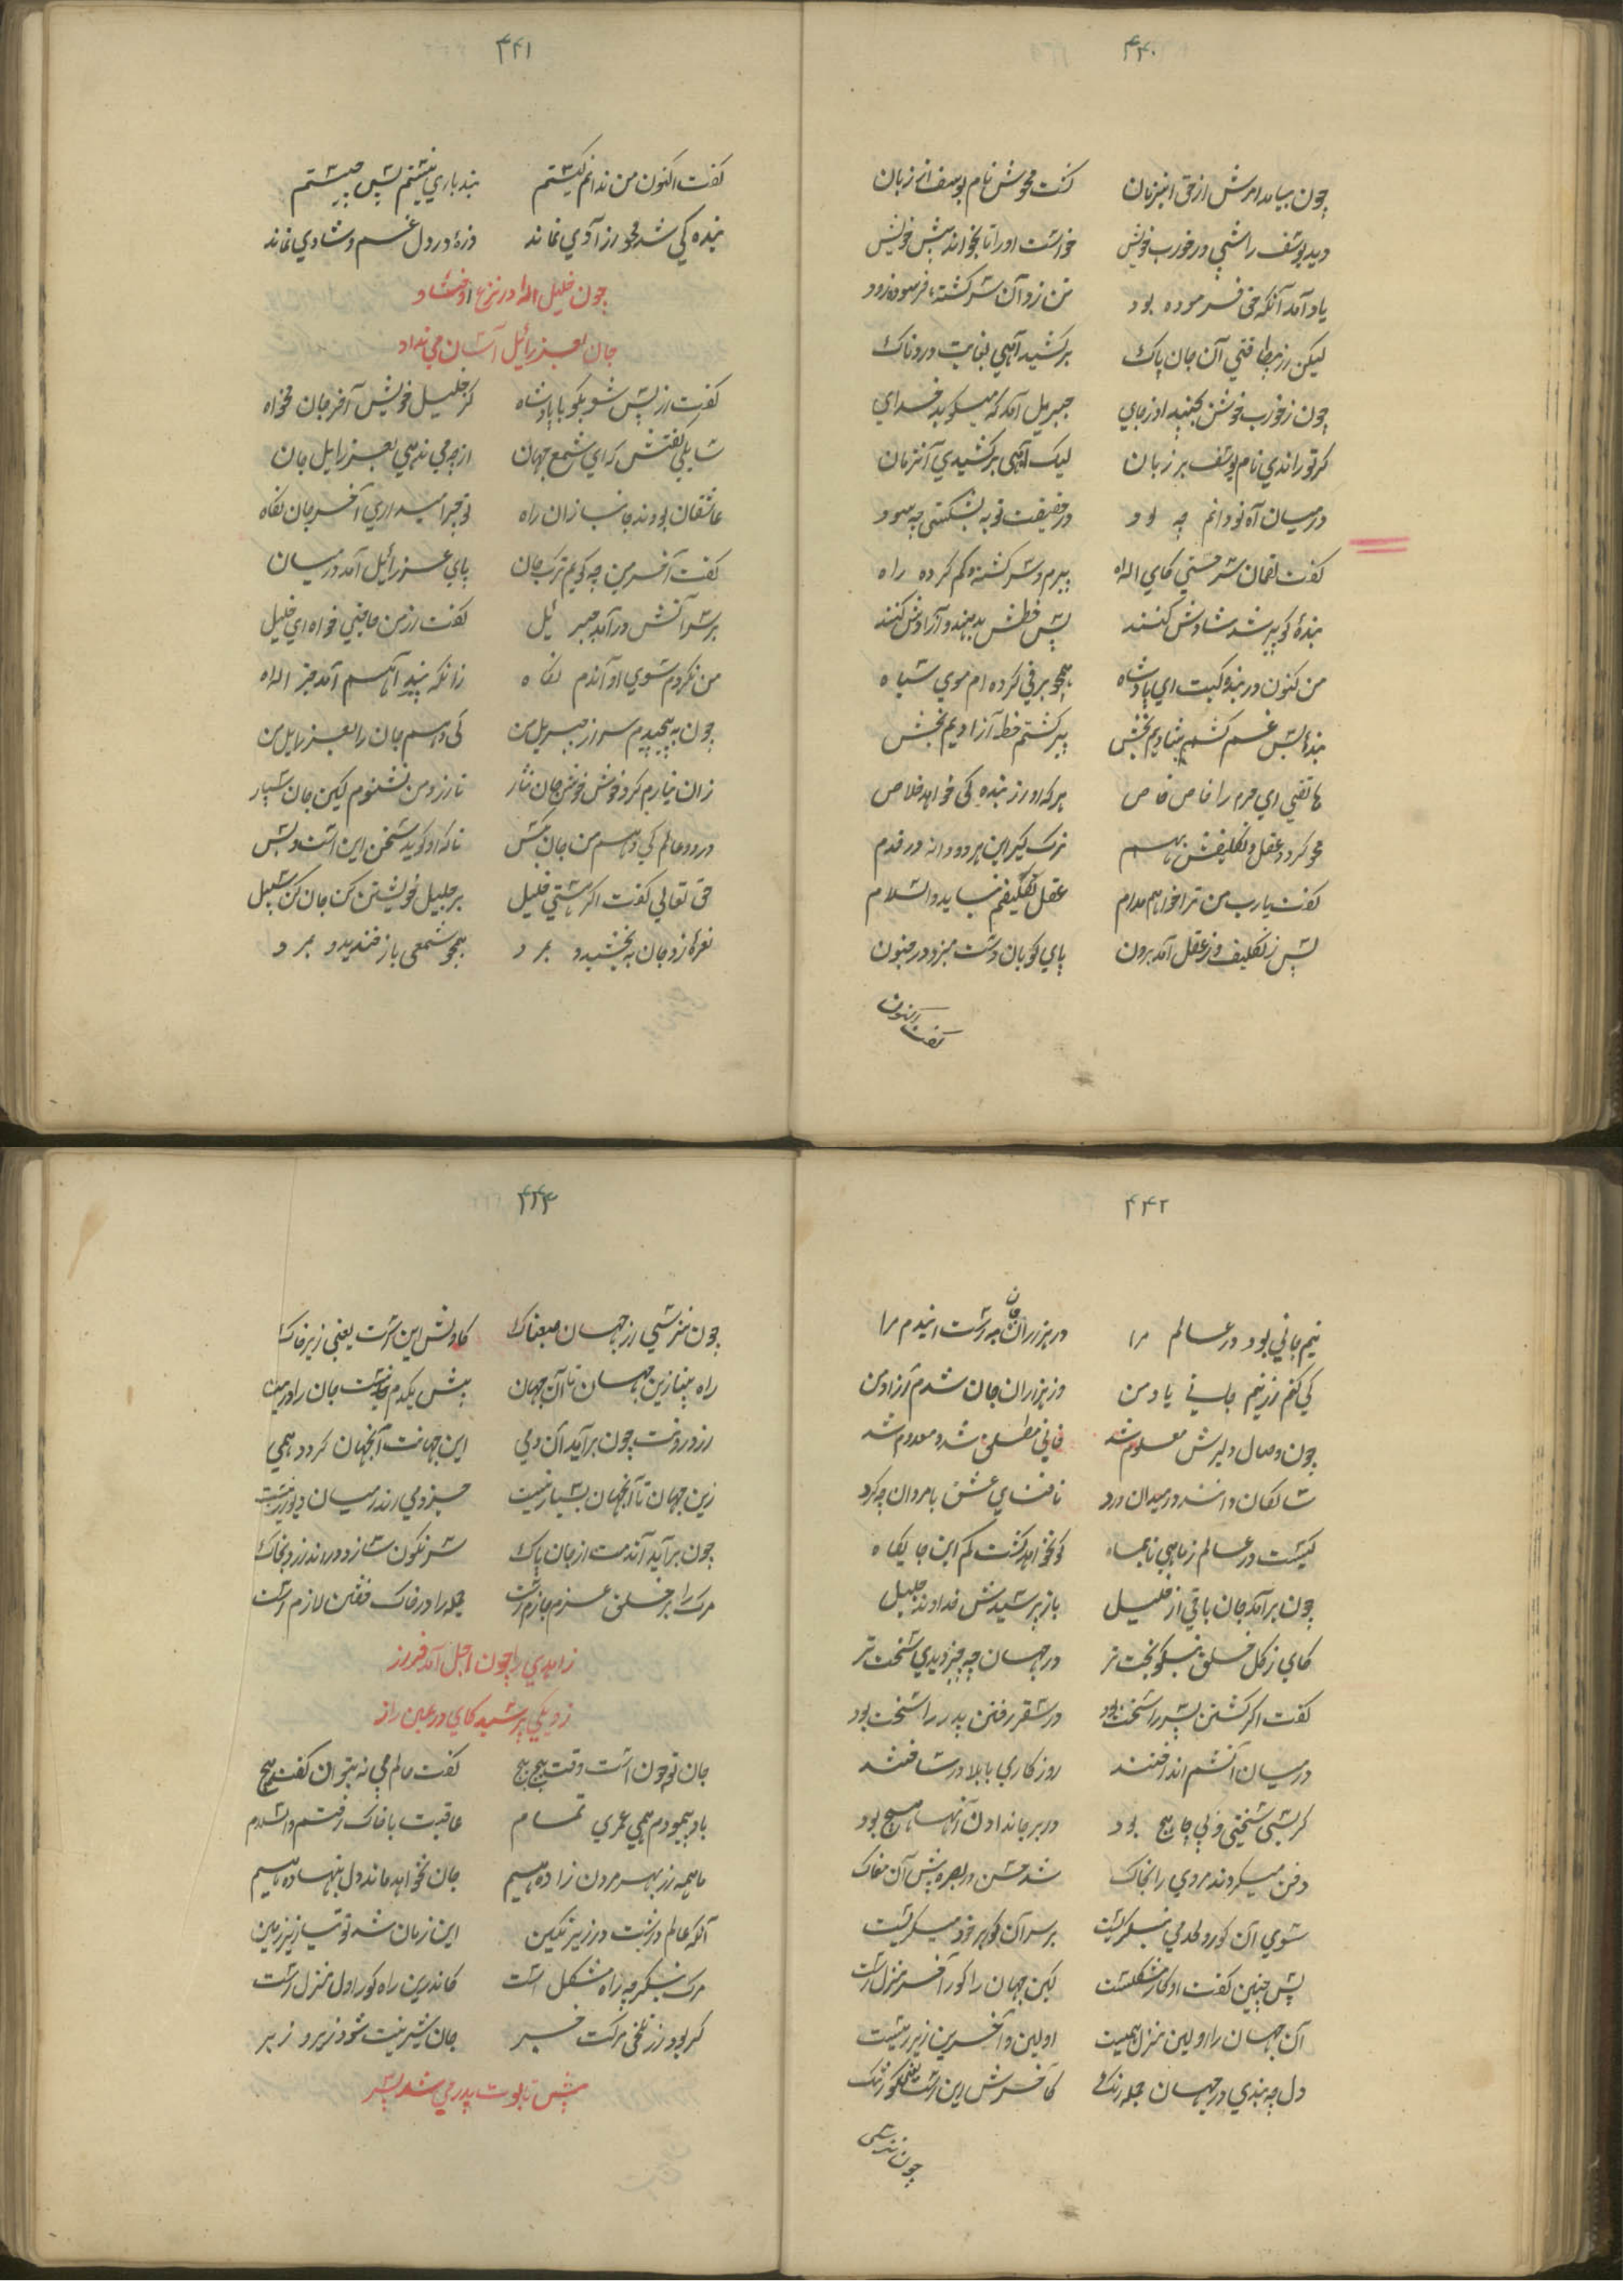 ۴۴۰
چون بیامد امرش از حق آنزمان گشت محوش نام یوسف از زبان
دید یوسف را شبی در خورب خویش خواست او را تا بخواند پیش خویش
یادش آمد آنکه حق فرموده بود تن زد آن سرگشته فرسوده زود
لیکن از بیطاقتی آن جان پاک برکشید آهی بغایت دردناک
چون ز خورب خوش بجنبید او ز جای جبریل آمد که میگوید خدای
گر تو راندی نام یوسف بر زبان لیک آهی برکشیدی آنزمان
در میان آه تو دانم چه بود در حقیقت توبه بشکستی چه سود
گفت لقمان سرخسی کای اله پیرم و سرگشته و گم کرده راه
بندهٔ کو پیر شد شادش کنند پس خطش بدهند و آزادش کنند
من کنون در بندگیت ای پادشاه همچو برفی کرده ام موی سیاه
بندهٔ بس غم کشم شادیم بخش پیر گشتم خط آزادیم بخش
هاتفی ای حرم را خاص خاص هر که او از بندگی خواهد خلاص
محو گردد عقل و تکلیفش بهم ترک گیر این هر دو و در نه قدم
گفت یارب من ترا خواهم مدام عقل و تکلیفم نباید والسلام
پس ز تکلیف و ز عقل آمد برون پای کوبان دست میزد در جنون
گفت اکنون
۴۴۱
گفت اکنون من ندانم کیستم بنده باری نیستم پس چیستم
بندگی شد محو آزادی نماند ذرهٔ در دل غم و شادی نماند
چون خلیل الله در نزع اوفتاد
جان بعزرائیل آسان می نداد
گفت از پس شو بگو با پادشاه کز خلیل خویش آخر جان مخواه
سایلی گفتش که ای شمع جهان از چه می ندهی بعزرایل جان
عاشقان بودند جانبازان راه تو چرا میداری آخر جان نگاه
گفت آخر من چه گویم ترک جان پای عزرائیل آمد در میان
بر سر آتش درآمد جبرئیل گفت از من حاجتی خواه ای خلیل
من نکردم سوی او آندم نگاه زانکه بند آهم آمد جز اله
چون به پیچیدم سر از جبریل من کی دهم جان را بعزرایل من
زان نیارم کرد خوش خوش جان نثار تا ازو من نشنوم لیکن جان سپار
در دو عالم کی دهم من جان بکس تا که او گوید سخن این است و بس
حق تعالی گفت اگر هستی خلیل بر جلیل خویشتن کن جان کن سبیل
نعره زد جان به بخشید و بمرد همچو شمعی باز خندید و بمرد
۴۴۲
نیم جانی بود در عالم مرا در هزاران جان به دست اندم مرا
کی کنم از نیم جانی یاد من وز هزاران جان شدم آزاد من
چون وصال دلبرش معلوم شد فانی مطلق شد و معدوم شد
سالکان دانند در میدان درد تا فنای عشق با مردان چه کرد
کیست در عالم ز ماهی تا بماه کو نخواهد گشت گم این جایگاه
چون برآمد جان باقی از خلیل باز پرسیدش خداوند جلیل
کای ز کل خلق نیکو بخت تر در جهان چه چیز دیدی سخت تر
گفت اگر کشتن پسر را سخت بود در سقر رفتن پدر را سخت بود
در میان آتشم انداختند روزگاری با بلا در ساختند
گر بسی سختی و پی چا پیچ بود در بر جان دادن آنها هیچ بود
دفن میکردند مردی را بخاک شد حسن در بصره پیش آن مغاک
سوی آن گور و لحد می بنگریست بر سر آن گور بر خود میگریست
پس چنین گفت او که کار مشکلست کین جهان را گور آخر منزل است
آن جهان را اولین منزل همیست اولین و آخرین زیر زمیست
دل چه بندی در جهان جمله رنگ کآخرش این است یعنی گور تنگ
چون نترسی
۴۴۳
چون نترسی از جهان صعبناک کاولش این است یعنی زیر خاک
راه بینا زین جهان تا آن جهان بیش یکدم نیست جان را در میان
از درونت چون برآید آن دمی این جهانت آنجهان گردد همی
زین جهان تا آنجهان بسیار نیست جز دمی اندر میان دیوار نیست
چون برآید آندمت از جان پاک سرنگون سازد درندازد بخاک
مرگ را بر خلق عزم جازم است جمله را در خاک خفتن لازم است
زاهدی را چون اجل آمد فراز
زو یکی پرسید کای در عین راز
جان تو چون است وقت پیچ پیچ گفت حالم می نه بتوان گفت هیچ
باد پیمودم همی عمری تمام عاقبت با خاک رفتم والسلام
ما همه از بهر مردن زاده هیم جان نخواهد ماند دل بنهاده هیم
آنکه عالم داشت در زیر نگین این زمان شد توتیا زیر زمین
مرگ بنگر چه راه مشکل است کاندرین راه گور اول منزل است
گر بود از تلخی مرگت خبر جان شیرینت شود زیر و زبر
پیش تابوت پدر می شد پسر